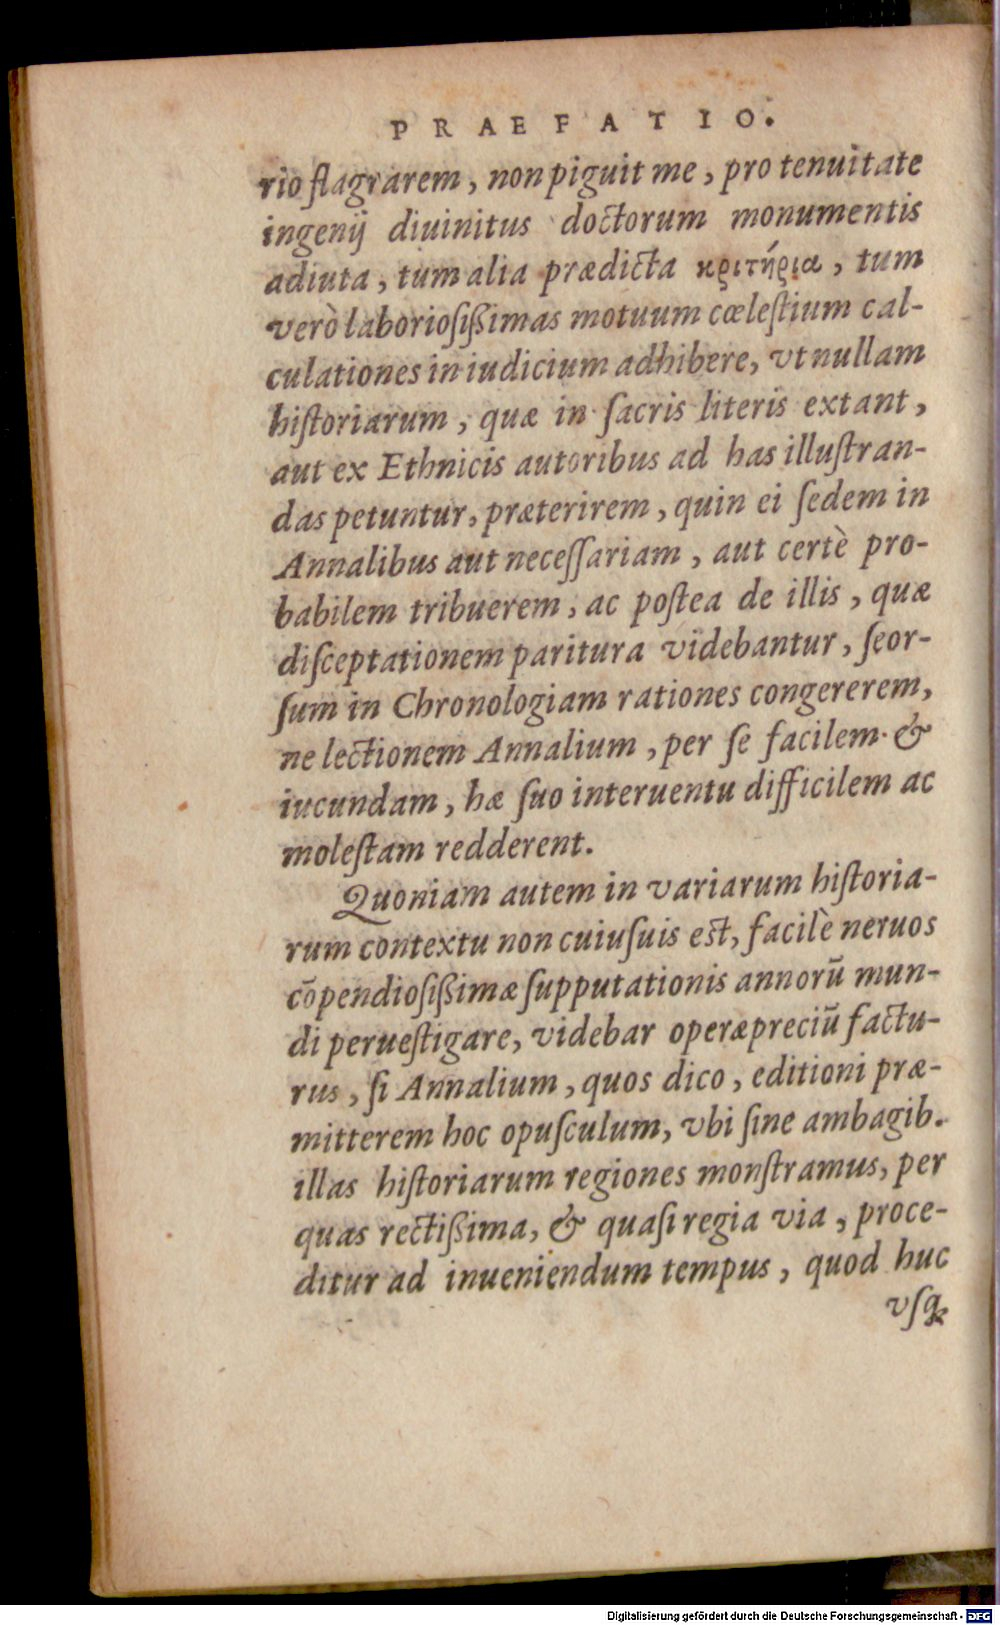 PRAEFATIO.
rio flagrarem, non piguit me, pro tenuitate
ingenij diuinitus doctorum monumentis
adiuta, tum alia prædicta κριτήρια, tum
verò laboriosißimas motuum cœlestium cal-
culationes in iudicium adhibere, vt nullam
historiarum, quæ in sacris literis extant,
aut ex Ethnicis autoribus ad has illustran-
das petuntur, præterirem, quin ei sedem in
Annalibus aut necessariam, aut certè pro-
babilem tribuerem, ac postea de illis, quæ
disceptationem paritura videbantur, seor-
sum in Chronologiam rationes congererem,
ne lectionem Annalium, per se facilem &
iucundam, hæ suo interuentu difficilem ac
molestam redderent.
Quoniam autem in variarum historia-
rum contextu non cuiusuis est, facilè neruos
cōpendiosißimæ supputationis annorū mun-
di peruestigare, videbar operæpreciū factu-
rus, si Annalium, quos dico, editioni præ-
mitterem hoc opusculum, vbi sine ambagib.
illas historiarum regiones monstramus, per
quas rectißima, & quasi regia via, proce-
ditur ad inueniendum tempus, quod huc
vsq;
Digitalisierung gefördert durch die Deutsche Forschungsgemeinschaft - DFG